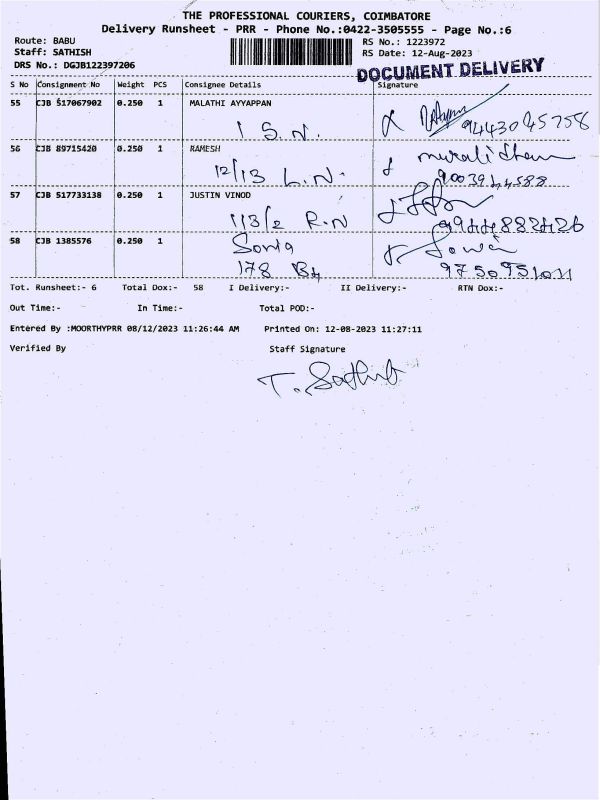 THE PROFESSIONAL COURIERS, COIMBATORE
Delivery Runsheet - PRR - Phone No.:0422-3505555 - Page No.:6
Route: BABU
RS No.: 1223972
Staff: SATHISH
RS Date: 12-Aug-2023
DRS No.: DGJB122397206
DOCUMENT DELIVERY
S No Consignment No Weight PCS Consignee Details Signature
55 CJB 517067902 0.250 1 MALATHI AYYAPPAN
1 S.N. 9443045758
56 CJB 89715420 0.250 1 RAMESH
12/13 L.N.
9003944588
57 CJB 517733138 0.250 1 JUSTIN VINOD
113/2 R.N 9944882426
58 CJB 1385576 0.250 1 Sonia
178 9750951011
Tot. Runsheet:- 6 Total Dox:- 58 I Delivery:- II Delivery:- RTN Dox:-
Out Time:- In Time:- Total POD:-
Entered By :MOORTHYPRR 08/12/2023 11:26:44 AM Printed On: 12-08-2023 11:27:11
Verified By Staff Signature
T. Sathish